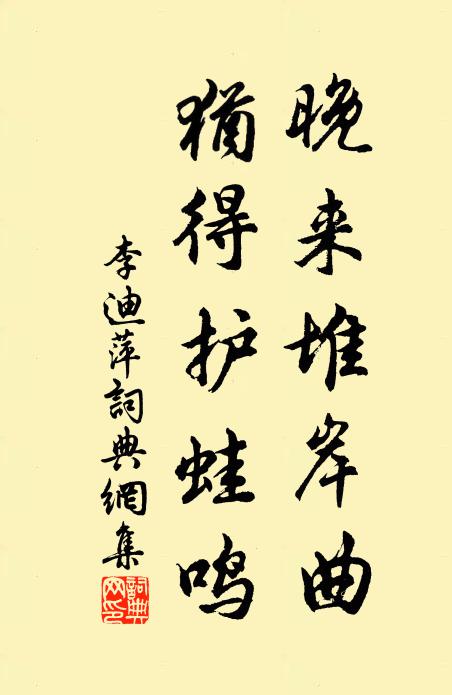 晚来堆岸曲
犹得护蛙鸣
李迪萍詞典網集
詞典
网印